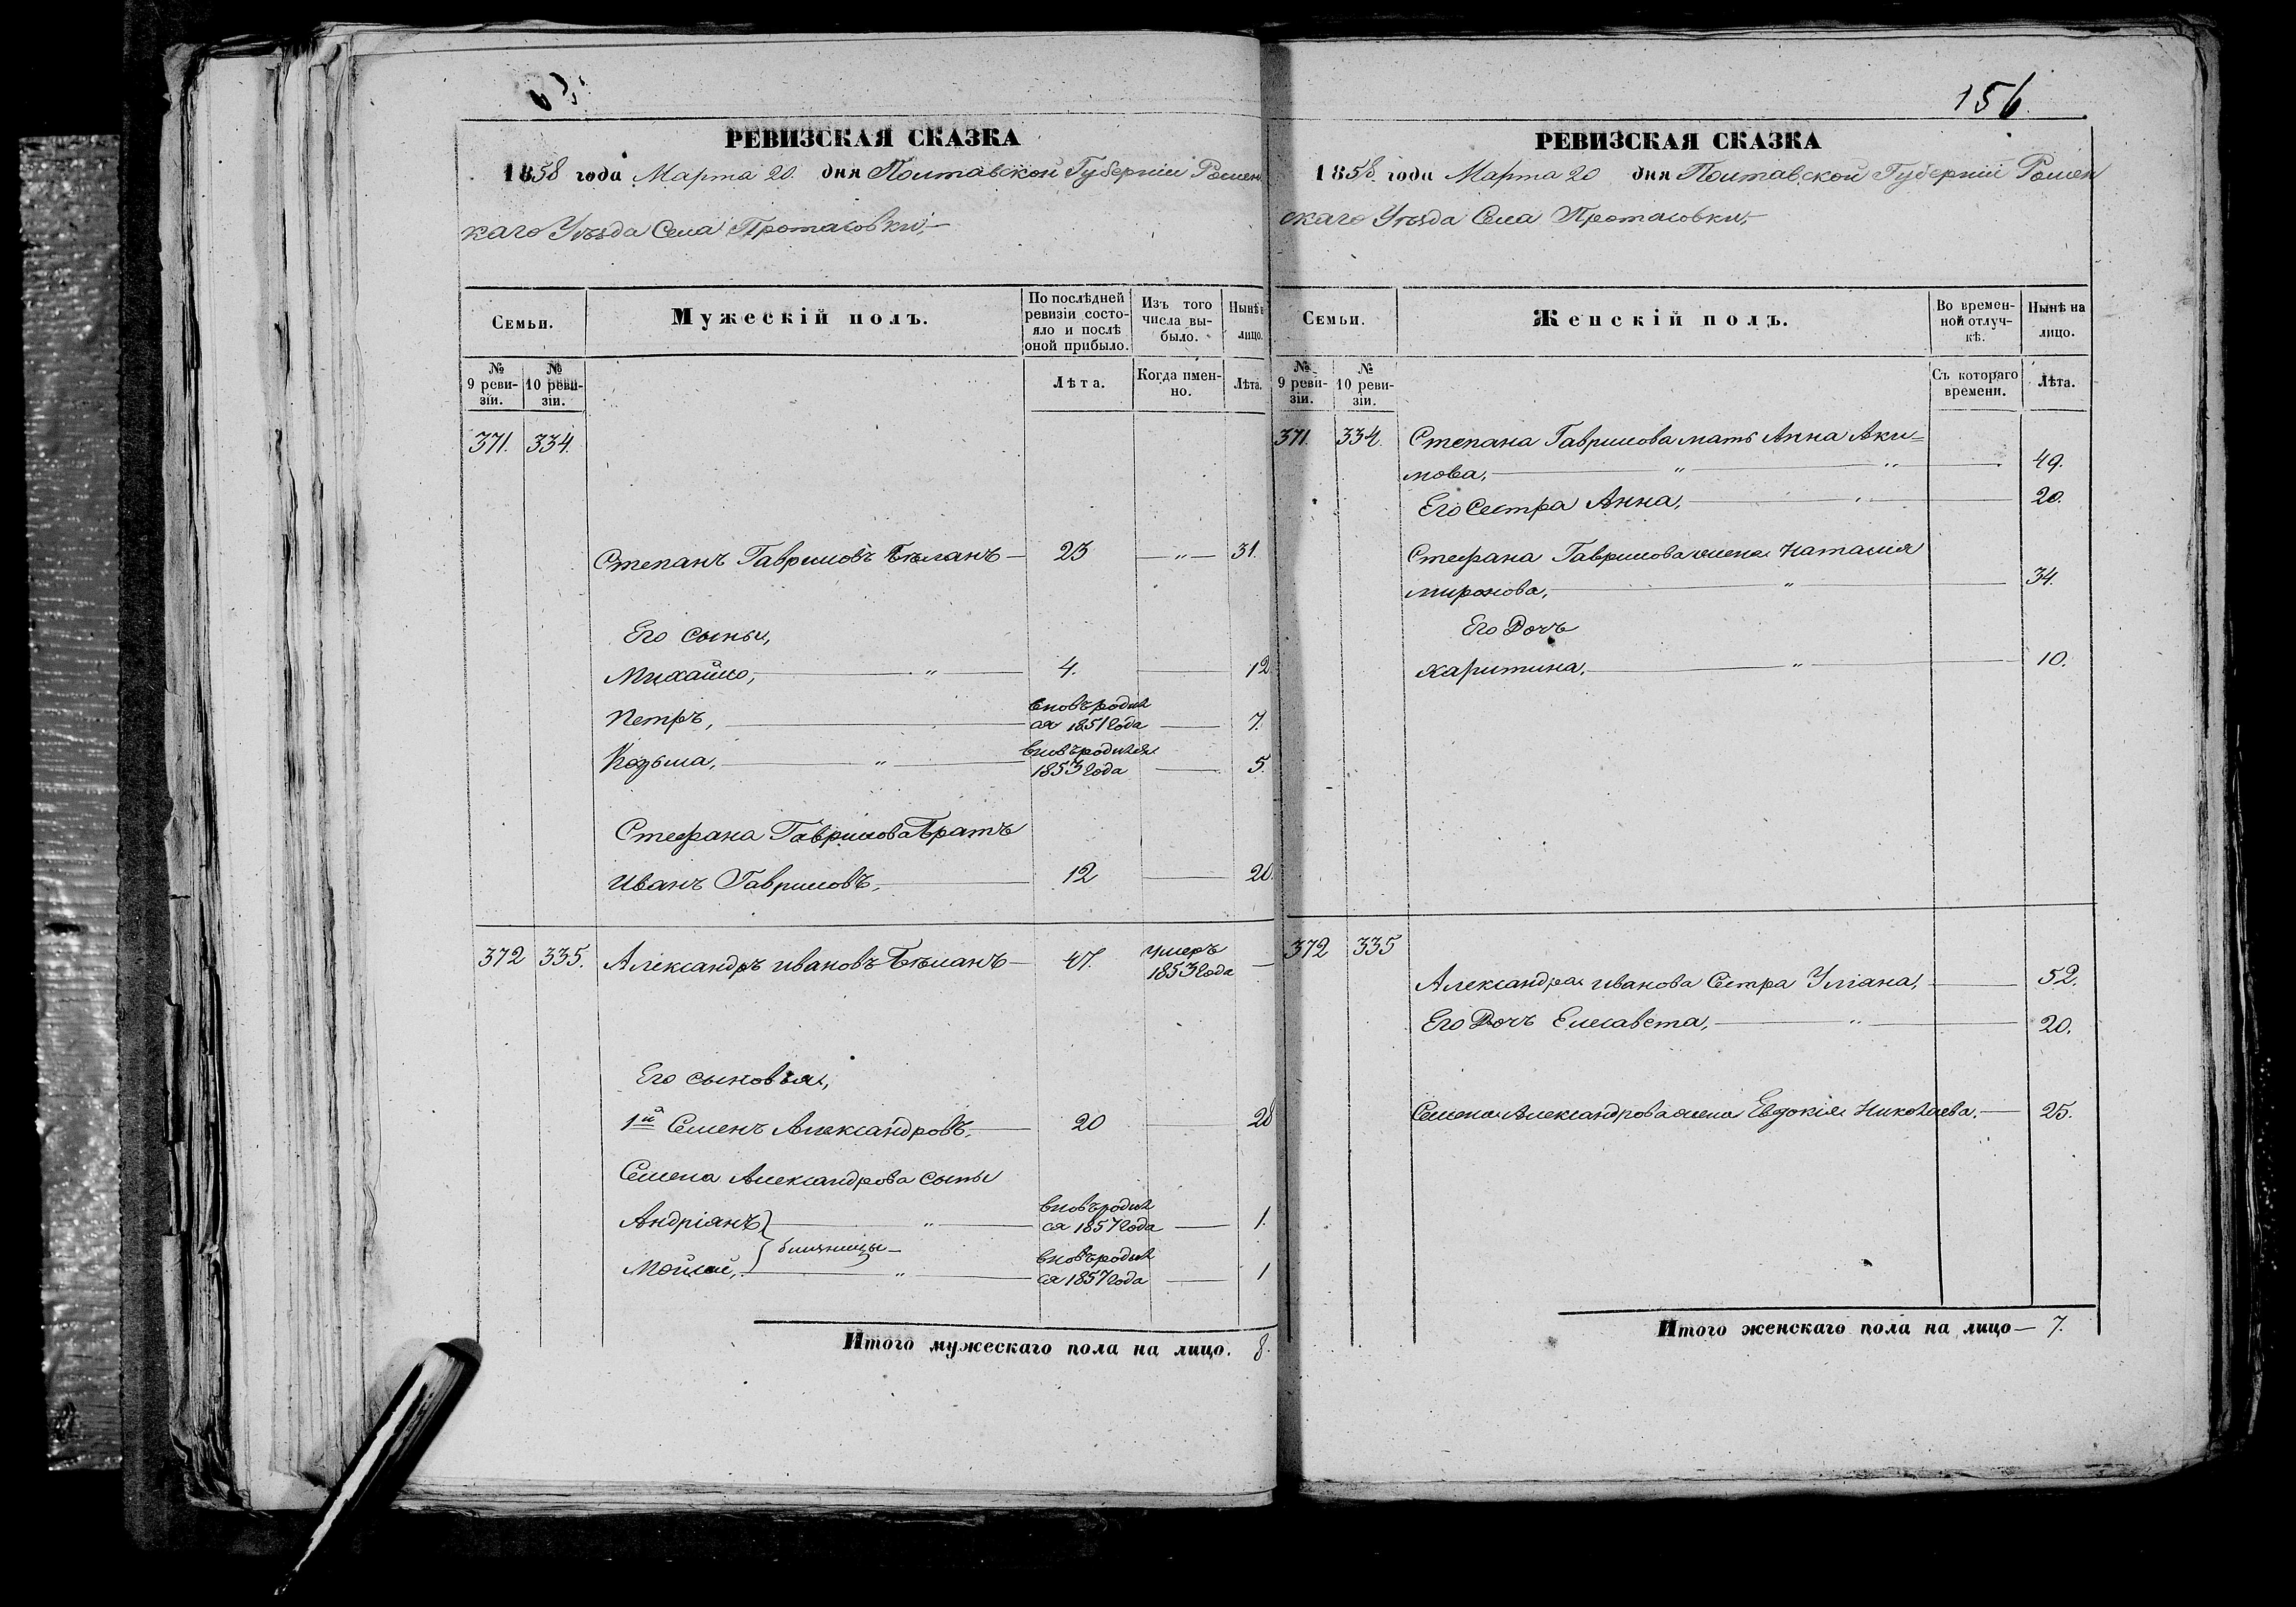 РЕВИЗСКАЯ СКАЗКА
1858 года Марта 20. дня Полтавской Губерніи Ромен
каго Уѣзда Села Протасовки,
Семьи.
Мужескій полъ.
По послѣдней ревизіи состояло и послѣ оной прибыло.
Изъ того числа выбыло.
Нынѣ лицо.
№ 9 ревизіи.
№ 10 ревизіи.
Лѣта.
Когда именно.
Лѣта.
371. 334.
Степанъ Гавриловъ Бѣланъ — 23 — „ — 31.
Его сыны,
Михайло, „ 4. 12
Петръ, вновь родил
ся 1851 года 7.
Козьма, „ вновь родился
1853 года 5.
Стефана Гаврилова Братъ
Иванъ Гавриловъ, 12 20.
372 335. Александръ Ивановъ Бѣланъ — 47. умеръ
1853 года —
Его сыновья,
1й Семенъ Александровъ, 20 28
Семена Александрова сыны
Андріянъ „ вновь родил
ся 1857 года 1.
близницы —
Мойсей, „ вновь родил
ся 1857 года 1
Итого мужескаго пола на лицо. 8.
156.
РЕВИЗСКАЯ СКАЗКА
1858. года Марта 20 дня Полтавской Губерніи Ромен
скаго Уѣзда Села Протасовки,
Семьи.
Женскій полъ.
Во временной отлучкѣ.
Нынѣ на лицо.
№ 9 ревизіи.
№ 10 ревизіи.
Съ котораго времени.
Лѣта.
371. 334. Степана Гаврилова мать Анна Аки=
мова, „ „ 49.
Его Сестра Анна, 20.
Стефана Гаврилова жена Наталия
Миронова, „ 34.
Его Дочь
Харитина, „ 10.
372 335
Александра Иванова Сестра Уліана, 52.
Его Дочь Елисавета, „ 20.
Семена Александрова жена Евдокія Николаева. — 25.
Итого женскаго пола на лицо — 7.